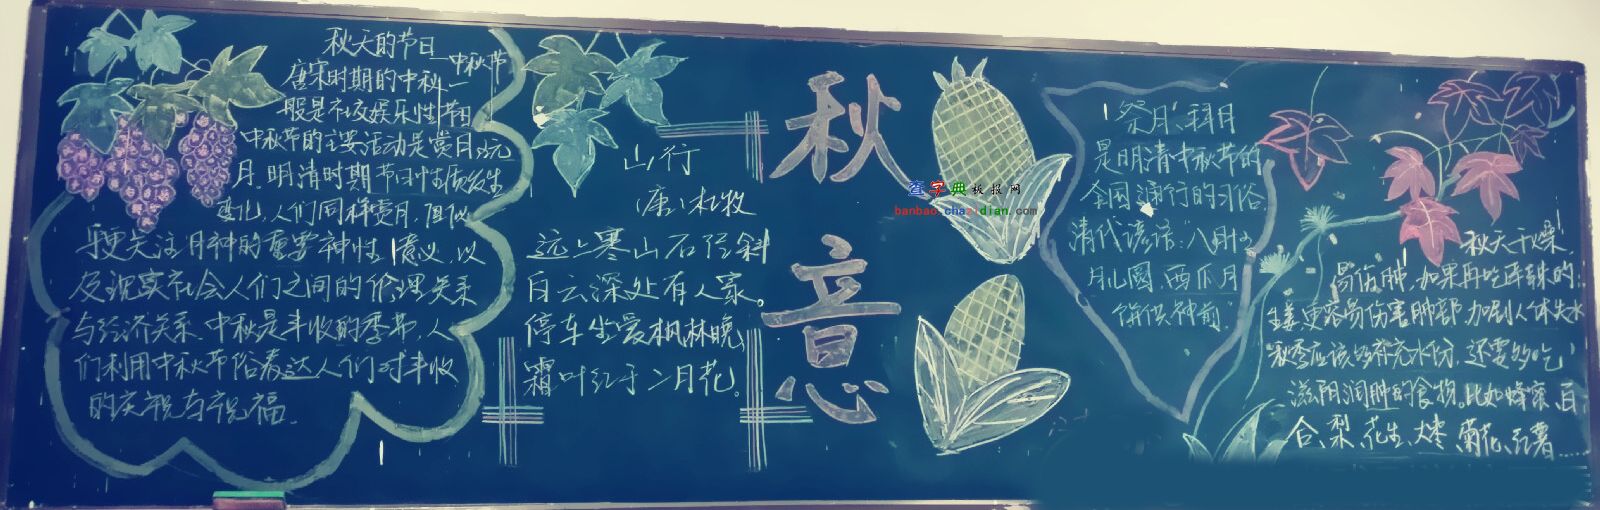 秋天的节日
—中秋节
唐宋时期的中秋一
般是社交娱乐性节日
中秋节的主要活动是赏月、玩
月。明清时期节日性质发生
变化,人们同样赏月,但似
乎更关注月神的重要神性意义,以
及现实社会人们之间的伦理关系
与经济关系。中秋是丰收的季节,人
们利用中秋节俗表达人们对丰收
的庆祝与祝福。
山行
(唐)杜牧
远上寒山石径斜
白云深处有人家。
停车坐爱枫林晚
霜叶红于二月花。
秋意
查字典板报网
banbao.chazidian.com
祭月、拜月
是明清中秋节的
全国通行的习俗
清代谚语:八月十五
月儿圆,西瓜月
饼供神前.
秋天干燥
易伤肺,如果再吃辛辣的
生姜更容易伤害肺部,加剧人体失水
秋季应该多补充水份,还要多吃
滋阴润肺的食物。比如蜂蜜、百
合、梨、花生、大枣、菊花、红薯……